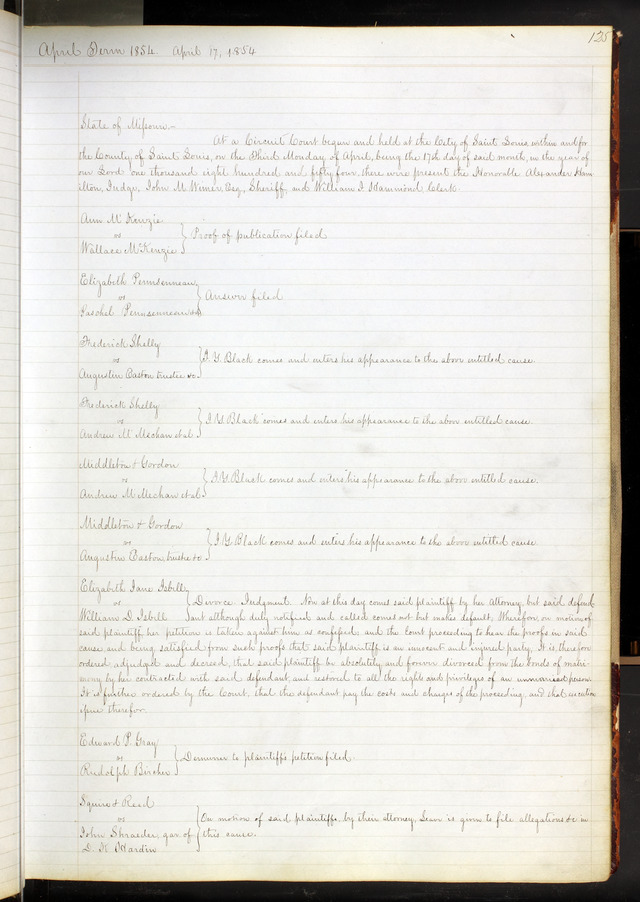 125
April Term 1854. April 17, 1854
State of Missouri.
At a Circuit Court begun and held at the City of Saint Louis within and for
the County of Saint Louis, on the Third Monday of April, being the 17th day of said month, in the year of
our Lord one thousand eight hundred and fifty four, there were present the Honorable Alexander Ham
ilton, Judge, John M Wimer, Esq, Sheriff, and William J. Hammond, Clerk.
Ann McKenzie
vs
Wallace McKenzie
Proof of publication filed
Elizabeth
vs
Answer filed
Frederick Shelly
vs
Augustin Easton trustee &c.
J. Y. Black comes and enters his appearance to the above entitled cause.
Frederick Shelly
vs
Andrew M. Mechan et al
J Y Black comes and enters his appearance to the above entitled cause.
Middleton & Gordon
vs
Andrew M Mechan et al
J Y Black comes and enters his appearance to the above entitled cause.
Middleton & Gordon
vs
Augustin Easton, trustee &c
J. Y. Black comes and enters his appearance to the above entitled cause.
Elizabeth Jane Isbill
vs
William D. Isbill
Divorce. Judgment. Now at this day comes said plaintiff by her Attorney, but said defend
ant although duly notified and called comes not but makes default, Wherefore, on motion of
said plaintiff, her petition is taken against him as confessed, and the Court proceeding to hear the proofs in said
cause, and being satisfied from such proofs that said plaintiff is an innocent and injured party, It is, therefore
ordered adjudged and decreed, that said plaintiff be absolutely and forever divorced from the bonds of matri-
mony by her contracted with said defendant, and restored to all the rights and privileges of an unmarried person.
It is further ordered by the Court, that the defendant pay the costs and charges of the proceeding, and that execution
issue therefor.
Edward P. Gray
vs
Rudolph Bircher
Demurrer to plaintiff's petition filed.
Squire & Reed
vs
John Shraeder, gar. of
L. K. Hardin
On motion of said plaintiffs, by their attorney, Leave is given to file allegations &c in
this cause.